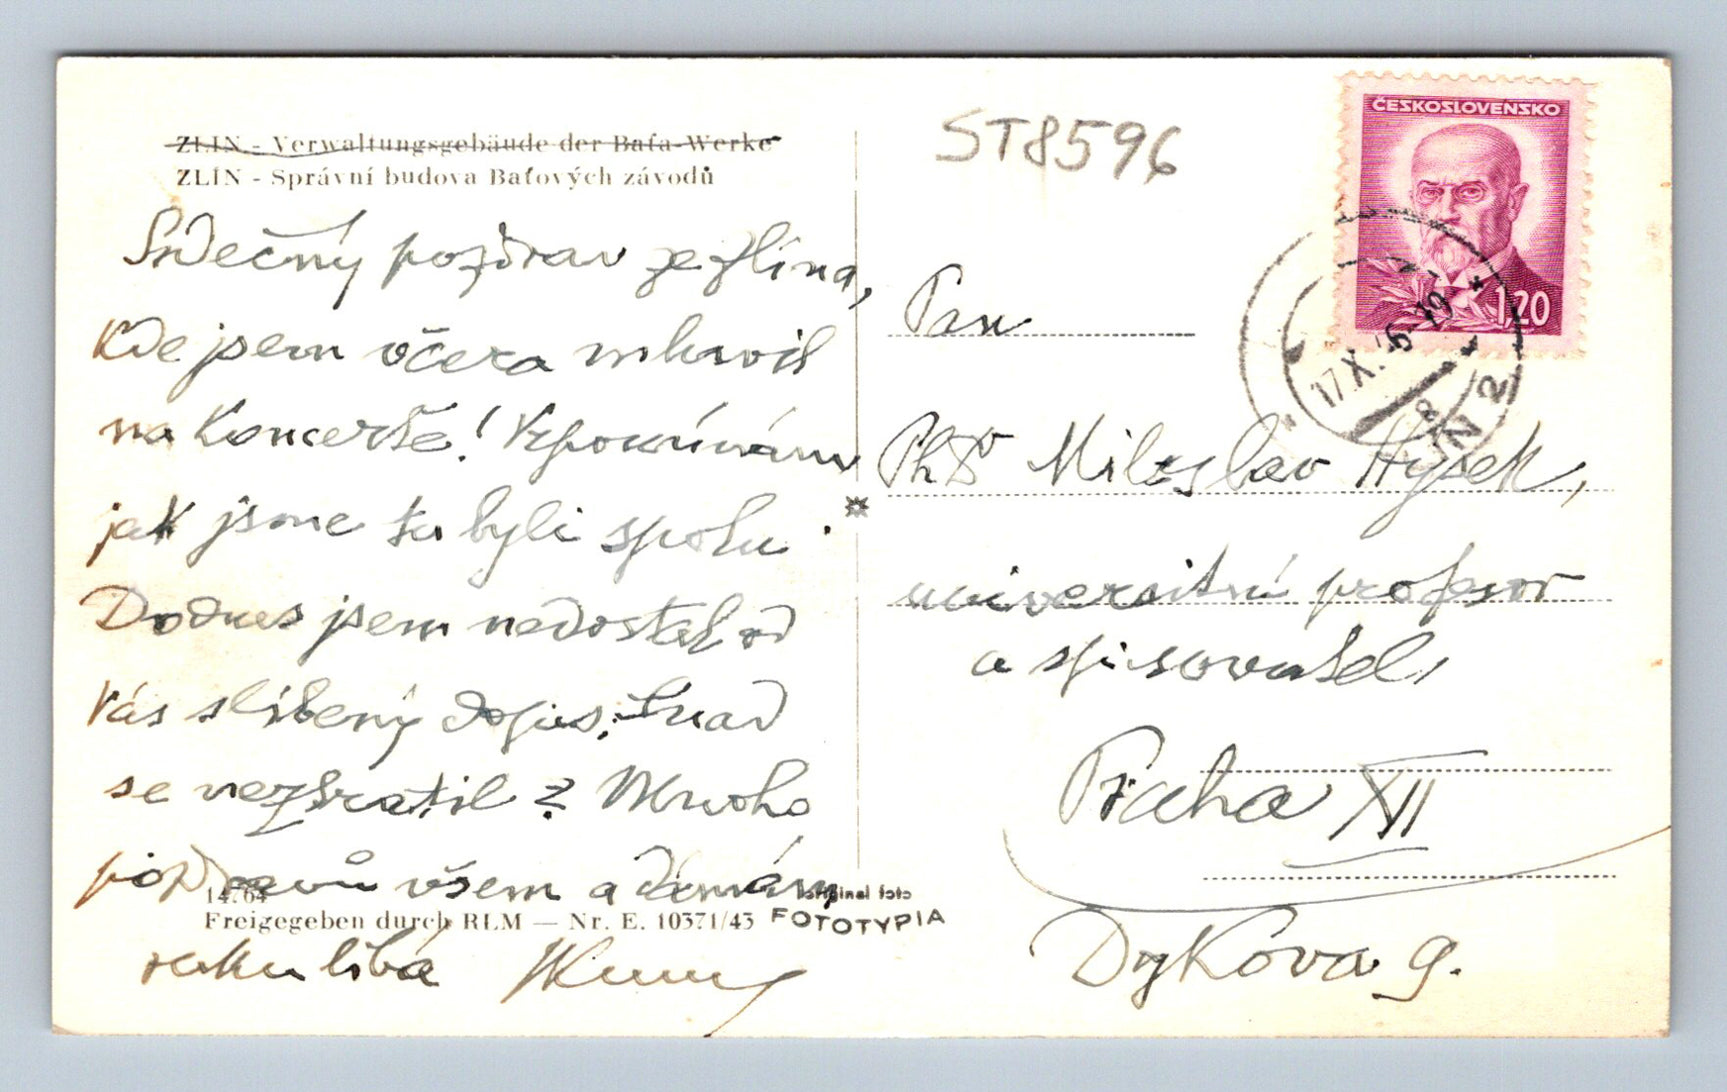 ZLIN - Verwaltungsgebäude der Baťa-Werke
ZLÍN - Správní budova Baťových závodů
Srdečný pozdrav ze Zlína,
kde jsem včera mluvil
na koncertě! Vzpomínám
jak jsme tu byli spolu.
Dodnes jsem nedostal od
Vás slíbený dopis. Snad
se neztratil? Mnoho
pozdravů všem a dámám
ruku líbá
14764
Freigegeben durch RLM — Nr. E. 10371/43
original foto
FOTOTYPIA
ST8596
ČESKOSLOVENSKO
1,20
17.X.
N 2
Pan
PhDr Miloslav Hýsek,
universitní profesor
a spisovatel,
Praha XII
Dykova 9.